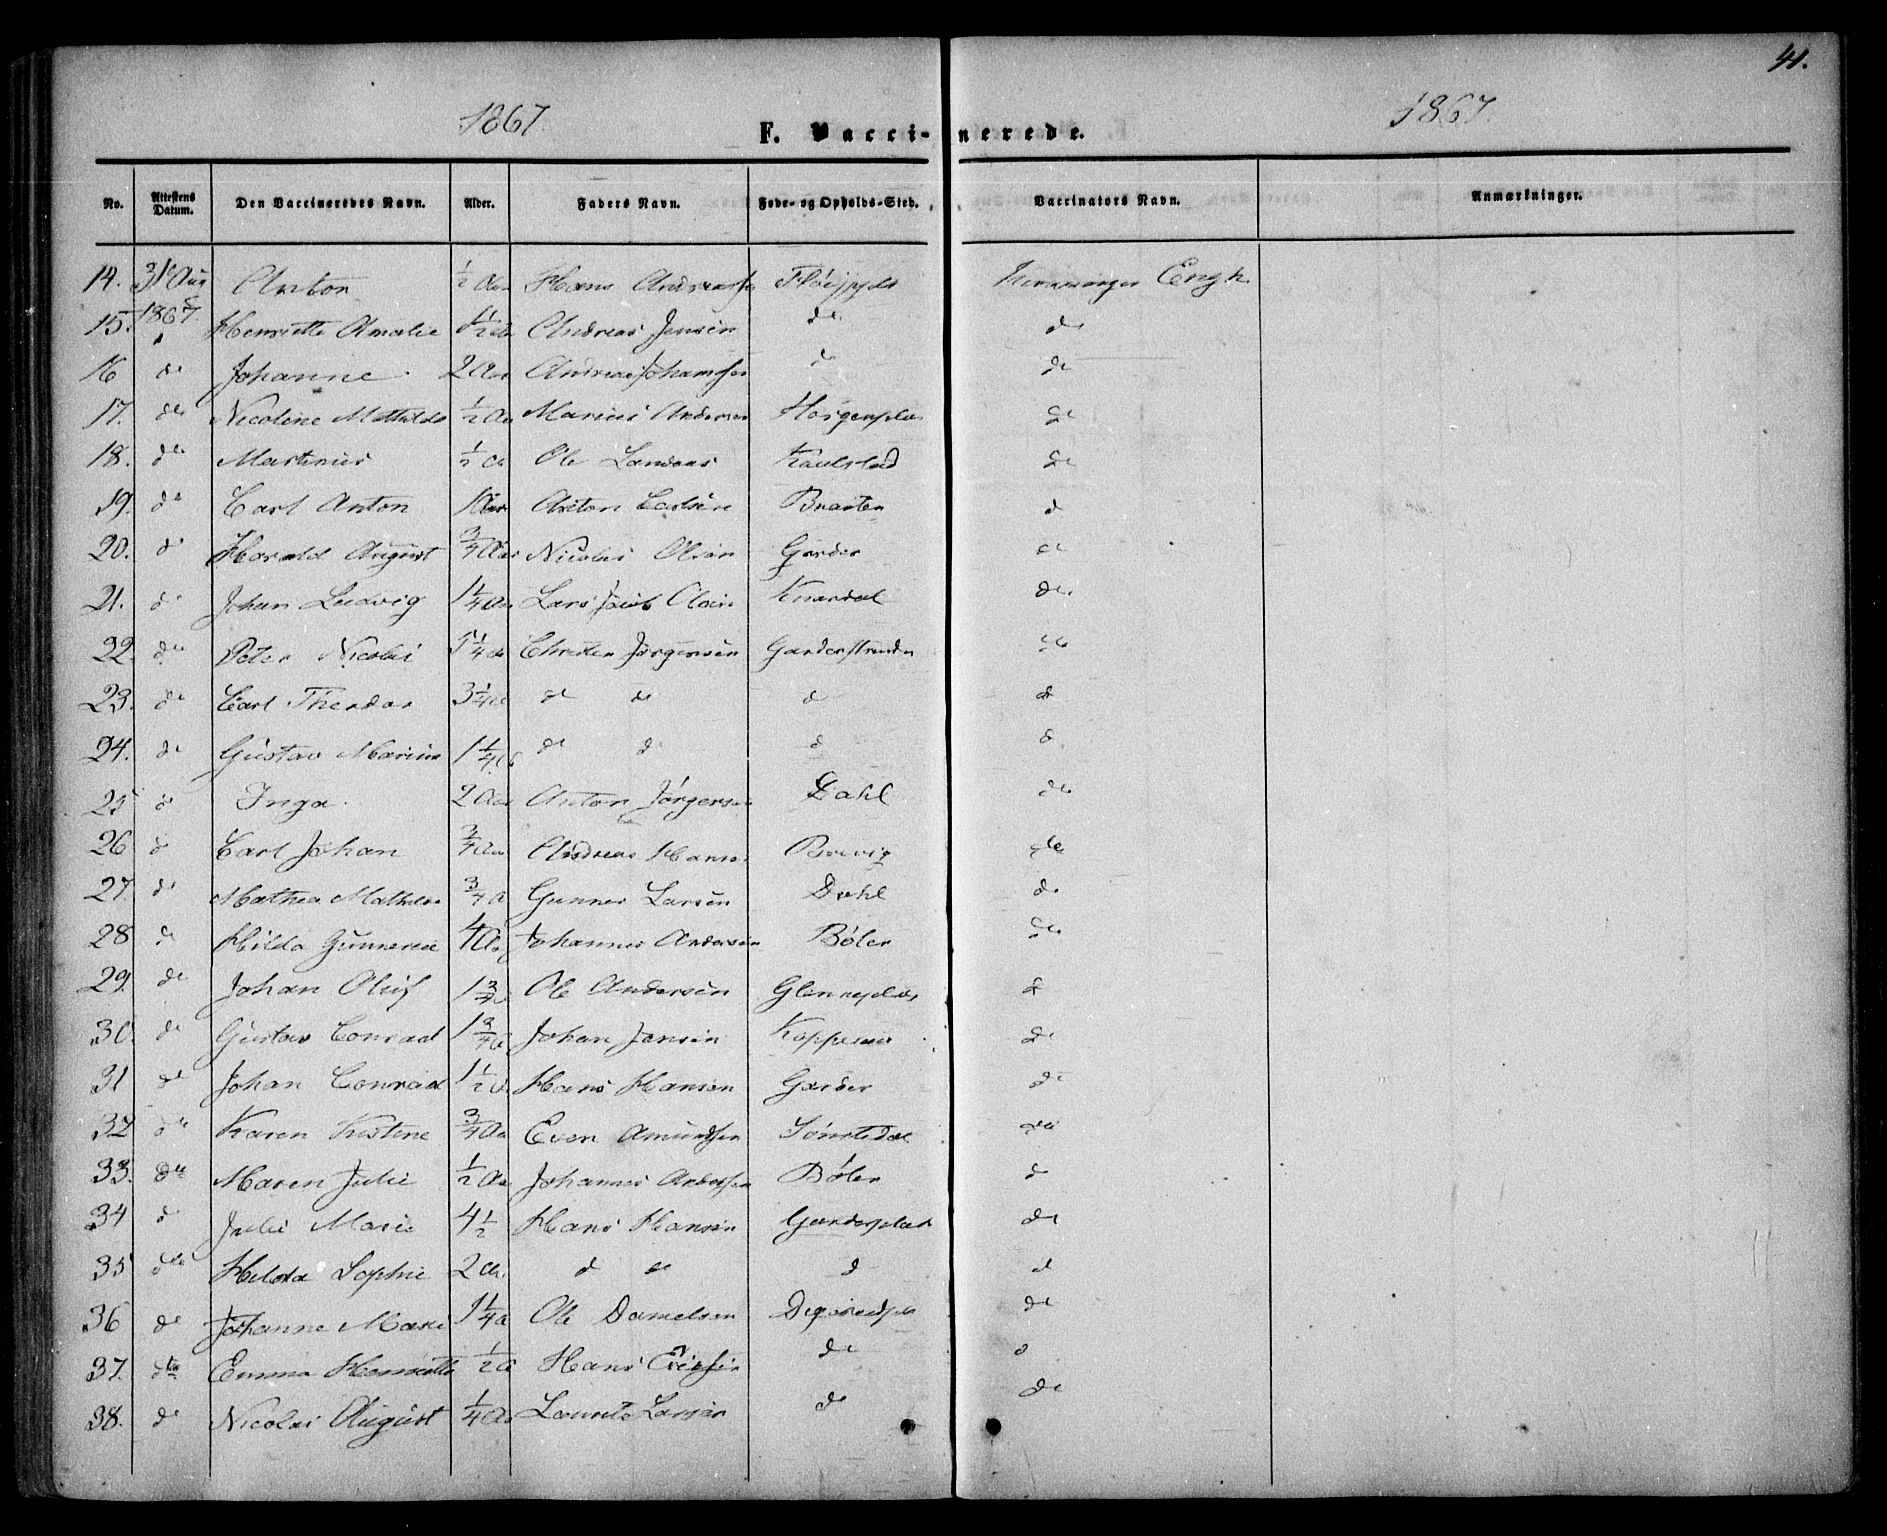 41.
1867. 1867.
F. Vaccinerede.
No. Attestens Datum. Den Vaccineredes Navn. Alder. Faders Navn. Føde- og Opholds-Sted. Vaccinators Navn. Anmærkninger.
14. 31te Aug 1867. Anton ½ Aar Hans Engh
15. Henriette Amalie 1½ Aar Andreas Jensen do do
16 do Johanne 2 Aar Andreas Johannesen do do
17. do Nicoline Mathilde ½ Aar Marius Andersen do
18. do Martinus ½ Aar Ole do
19. do Carl Anton 1 Aar Anton Carlsen Braaten do
20. do Harald August ¾ Aar Nicolai Olsen Garder do
21. do Johan Ludvig 1¼ Aar Lars Jacob Olsen do
22. do Peter Nicolai 5¼ Aar Christen Jørgensen do
23. do Carl Theodor 3¼ Aar do do do do
24. do Gustav Marius 1¼ A do do do do
25 do Inga. 2 Aar Anton Jørgensen Dahl do
26 do Carl Johan ¾ Aar Andreas Hansen Brevig do
27. do Mathea Mathilde ¾ A Gunner Larsen Dahl do
28 do Hilda Gunnerea 4 Aa Johannes Andersen Bøler do
29. do Johan Oluf 1¾ A Ole Andersen Glenneplads do
30. do Gustav Conrad 1¾ A Johan Jensen do
31 do Johan Conrad 1½ A Hans Hansen Garder do
32 do Karen Kristine ¾ Aa Even Amundsen do
33. do Maren Julie ½ Aa Johannes Andersen Bøler do
34 do Julie Marie 4½ Hans Hansen Garderplads do
35 do Hilda Sophie 2 Aa. do do do do
36 do Johanne Marie 1¼ A Ole Danielsen do
37. do Emma Henriette ½ A Hans do do
38. do Nicolai August ¼ Aa Larsen do do